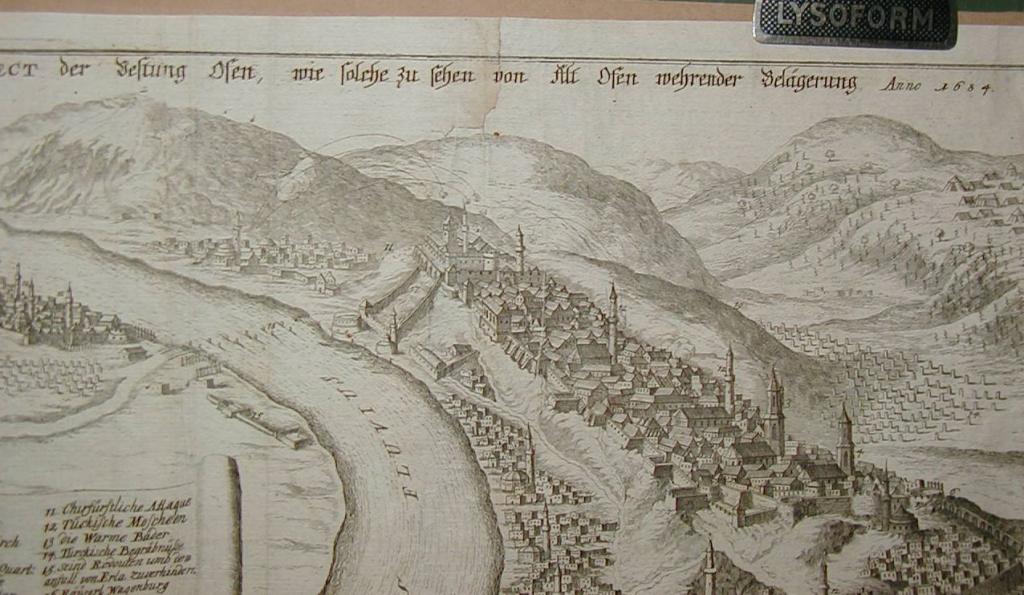 LYSOFORM
ECT der Vestung Ofen, wie solche zu sehen von Alt Ofen wehrender Belägerung Anno 1684.
H
FLUVIUS
11 Churfürstliche Attaque
12 Türckische Moscheen
rch 13 die Warme Bäder
14 Türckische Begräbnüße
Quart: 15 Redouten umb den
anfall von Erla zuverhindern
16 Wagenburg